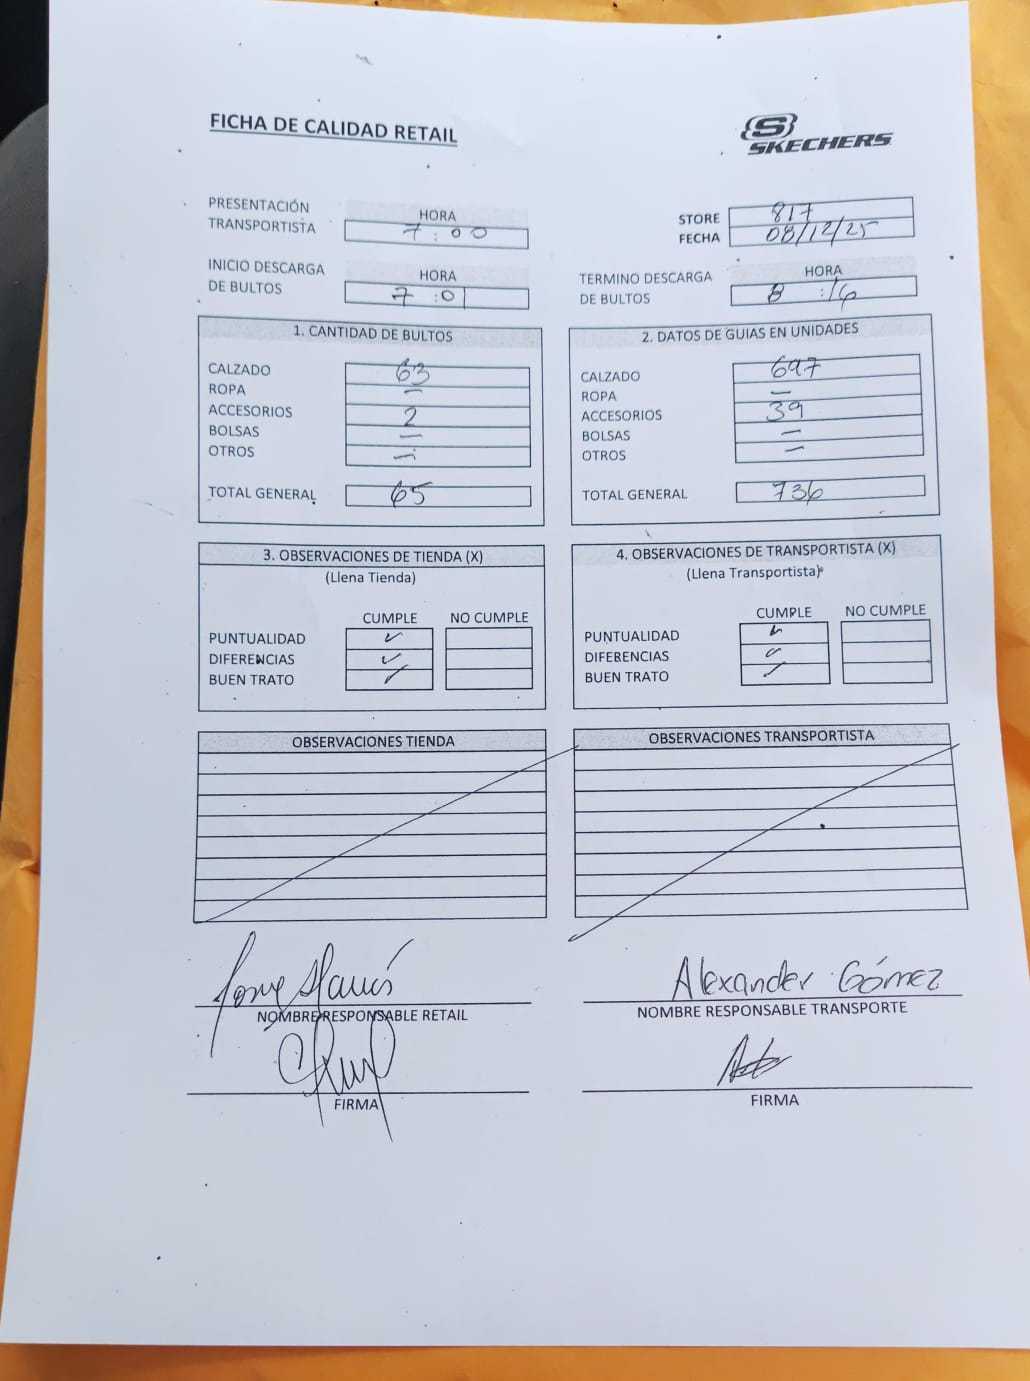 FICHA DE CALIDAD RETAIL
S
SKECHERS
PRESENTACIÓN TRANSPORTISTA
HORA
7:00
STORE 817
FECHA 08/12/25
INICIO DESCARGA DE BULTOS
HORA
7:01
TERMINO DESCARGA DE BULTOS
HORA
8:16
1. CANTIDAD DE BULTOS
CALZADO 63
ROPA —
ACCESORIOS 2
BOLSAS —
OTROS —
TOTAL GENERAL 65
2. DATOS DE GUIAS EN UNIDADES
CALZADO 697
ROPA —
ACCESORIOS 39
BOLSAS —
OTROS —
TOTAL GENERAL 736
3. OBSERVACIONES DE TIENDA (X)
(Llena Tienda)
CUMPLE NO CUMPLE
PUNTUALIDAD ✓
DIFERENCIAS ✓
BUEN TRATO ✓
4. OBSERVACIONES DE TRANSPORTISTA (X)
(Llena Transportista)
CUMPLE NO CUMPLE
PUNTUALIDAD ✓
DIFERENCIAS ✓
BUEN TRATO ✓
OBSERVACIONES TIENDA
OBSERVACIONES TRANSPORTISTA
NOMBRE RESPONSABLE RETAIL
Alexander Gómez
NOMBRE RESPONSABLE TRANSPORTE
FIRMA
FIRMA